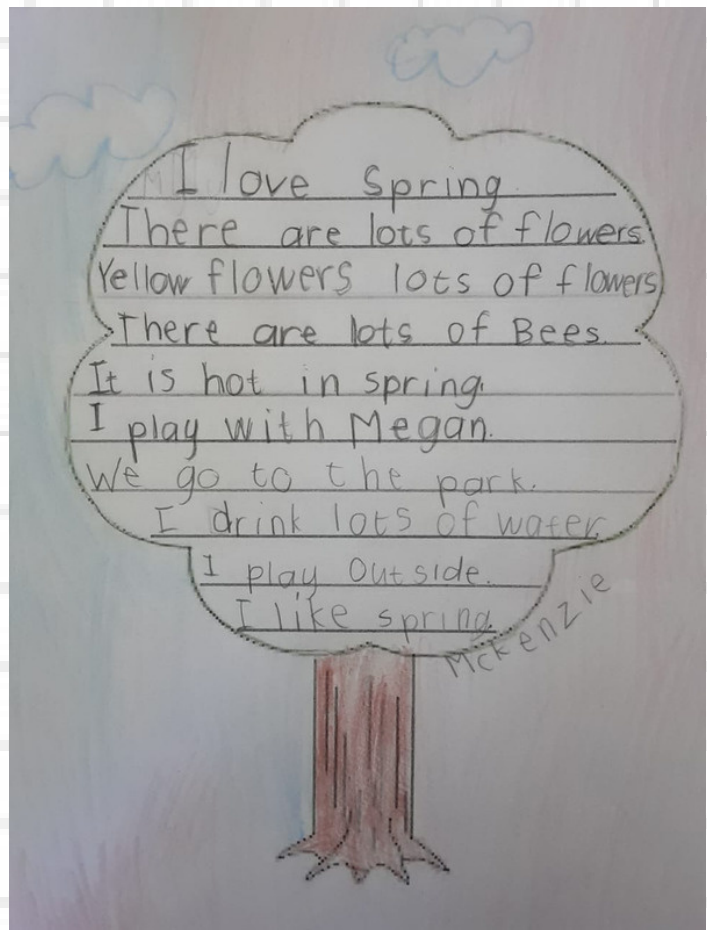 I love Spring
There are lots of flowers
Yellow flowers lots of flowers
There are lots of Bees.
It is hot in spring.
I play with Megan.
We go to the park.
I drink lots of water.
I play Outside.
I like spring.
Mckenzie